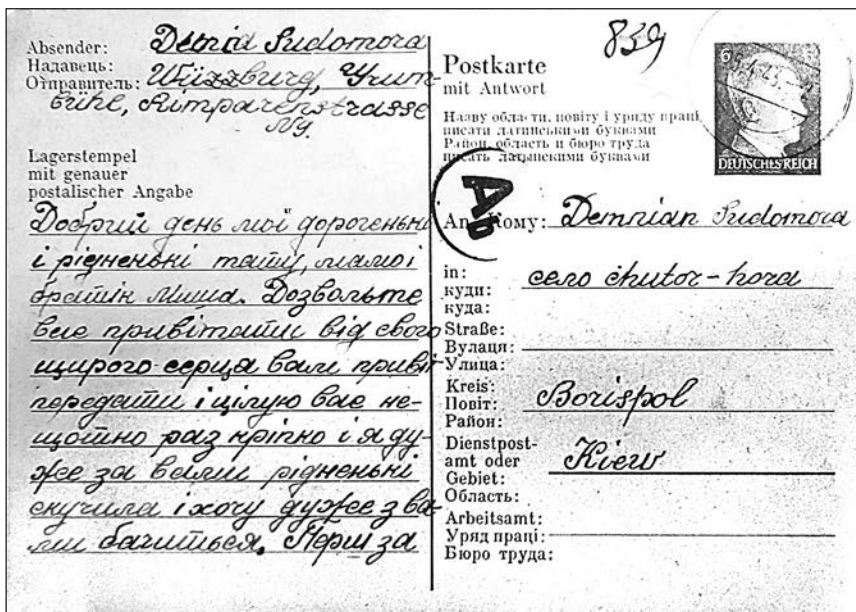 Absender:
Надавець:
Отправитель:
Sudomora
Würzburg,
Rimparenstrasse
Lagerstempel
mit genauer
postalischer Angabe
Добрий день мої дорогенькі
і рідненькі тату, мамо і
братік Миша. Дозвольте
вас привітати від свого
щирого серця вам привіт
передати і цілую вас не-
щотно раз кріпко і я ду-
же за вами рідненькі
скучила і хочу дуже з ва-
ми бачиться. Перш за
839
Postkarte
mit Antwort
Назву области, повіту і уряду праці
писати латинськими буквами
Район, область и бюро труда
писать латынскими буквами
6
DEUTSCHES REICH
Ab
An Кому: Demnian Sudomora
in:
куди:
куда:
село chutor-hora
Straße:
Вулаця:
Улица:
Kreis:
Повіт:
Район:
Borispol
Dienstpost-
amt oder
Gebiet:
Область:
Kiew
Arbeitsamt:
Уряд праці:
Бюро труда: